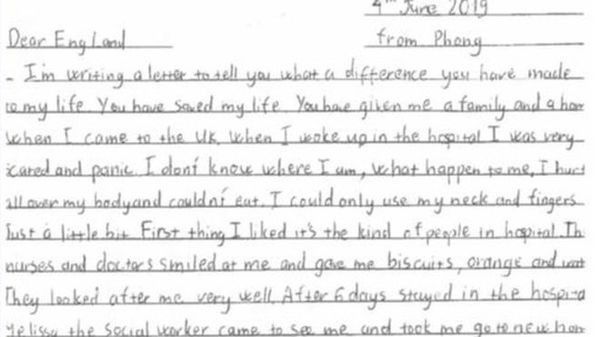 4th June 2019
Dear England
from Phong
- I'm writing a letter to tell you what a difference you have made
to my life. You have saved my life. You have given me a family and a hom
when I came to the UK. When I woke up in the hospital I was very
scared and panic. I don't know where I am, what happen to me, I hurt
all over my body and couldn't eat. I could only use my neck and fingers
Just a little bit. First thing I liked it's the kind of people in hospital. Th
nurses and doctors smiled at me and gave me biscuits, orange and wat
They looked after me very well. After 6 days stayed in the hospita
Melissa the social worker came to see me and took me go to new hom